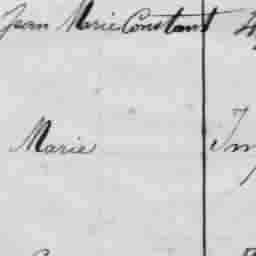 Jean Marie Constant
Marie